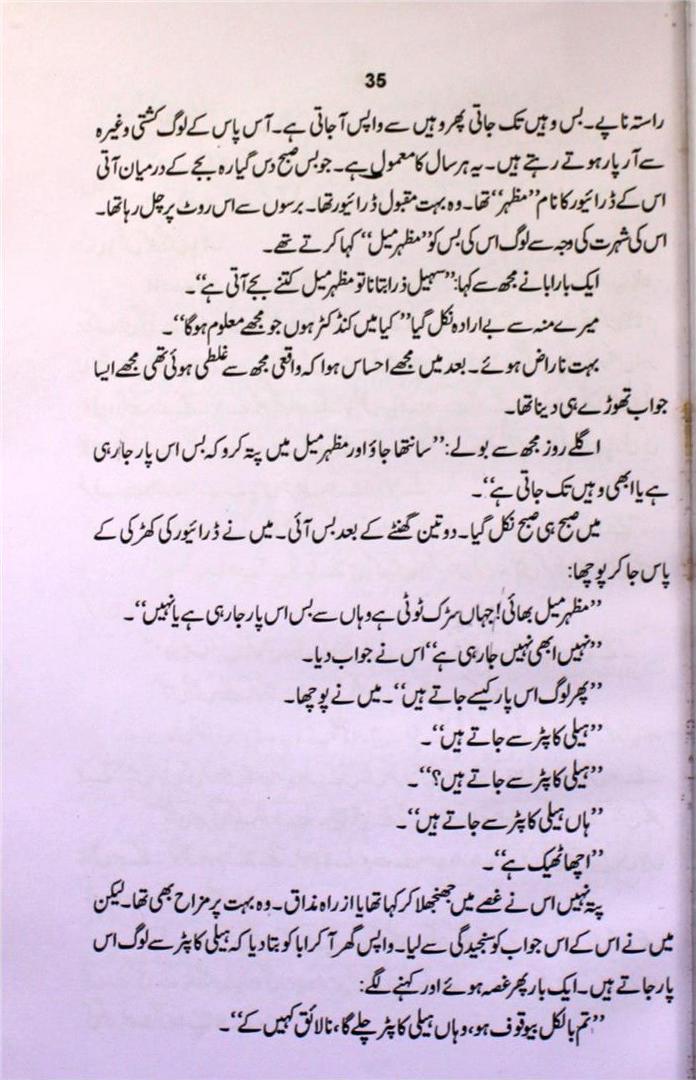 35
راستہ ناپے۔ بس وہیں تک جاتی پھر وہیں سے واپس آجاتی ہے۔ آس پاس کے لوگ کشتی وغیرہ
سے آر پار ہوتے رہتے ہیں۔ یہ ہر سال کا معمول ہے۔ جو بس صبح دس گیارہ بجے کے درمیان آتی
اس کے ڈرائیور کا نام ”مظہر“ تھا۔ وہ بہت مقبول ڈرائیور تھا۔ برسوں سے اس روٹ پر چل رہا تھا۔
اس کی شہرت کی وجہ سے لوگ اس کی بس کو ”مظہر میل“ کہا کرتے تھے۔
ایک بار ابا نے مجھ سے کہا: ”سہیل ذرا بتانا تو مظہر میل کتنے بجے آتی ہے“۔
میرے منہ سے بے ارادہ نکل گیا ”کیا میں کنڈکٹر ہوں جو مجھے معلوم ہوگا“۔
بہت ناراض ہوئے۔ بعد میں مجھے احساس ہوا کہ واقعی مجھ سے غلطی ہوئی تھی مجھے ایسا
جواب تھوڑے ہی دینا تھا۔
اگلے روز مجھ سے بولے: ”سانتھا جاؤ اور مظہر میل میں پتہ کرو کہ بس اس پار جارہی
ہے یا ابھی وہیں تک جاتی ہے“۔
میں صبح ہی صبح نکل گیا۔ دو تین گھنٹے کے بعد بس آئی۔ میں نے ڈرائیور کی کھڑکی کے
پاس جا کر پوچھا:
”مظہر میل بھائی! جہاں سڑک ٹوٹی ہے وہاں سے بس اس پار جارہی ہے یا نہیں“۔
”نہیں ابھی نہیں جارہی ہے“ اس نے جواب دیا۔
”پھر لوگ اس پار کیسے جاتے ہیں“۔ میں نے پوچھا۔
”ہیلی کاپٹر سے جاتے ہیں“۔
”ہیلی کاپٹر سے جاتے ہیں؟“۔
”ہاں ہیلی کاپٹر سے جاتے ہیں“۔
”اچھا ٹھیک ہے“۔
پتہ نہیں اس نے غصے میں جھنجھلا کر کہا تھا یا از راہ مذاق۔ وہ بہت پر مزاح بھی تھا۔ لیکن
میں نے اس کے اس جواب کو سنجیدگی سے لیا۔ واپس گھر آکر ابا کو بتا دیا کہ ہیلی کاپٹر سے لوگ اس
پار جاتے ہیں۔ ایک بار پھر غصہ ہوئے اور کہنے لگے:
”تم بالکل بیوقوف ہو، وہاں ہیلی کاپٹر چلے گا، نالائق کہیں کے“۔